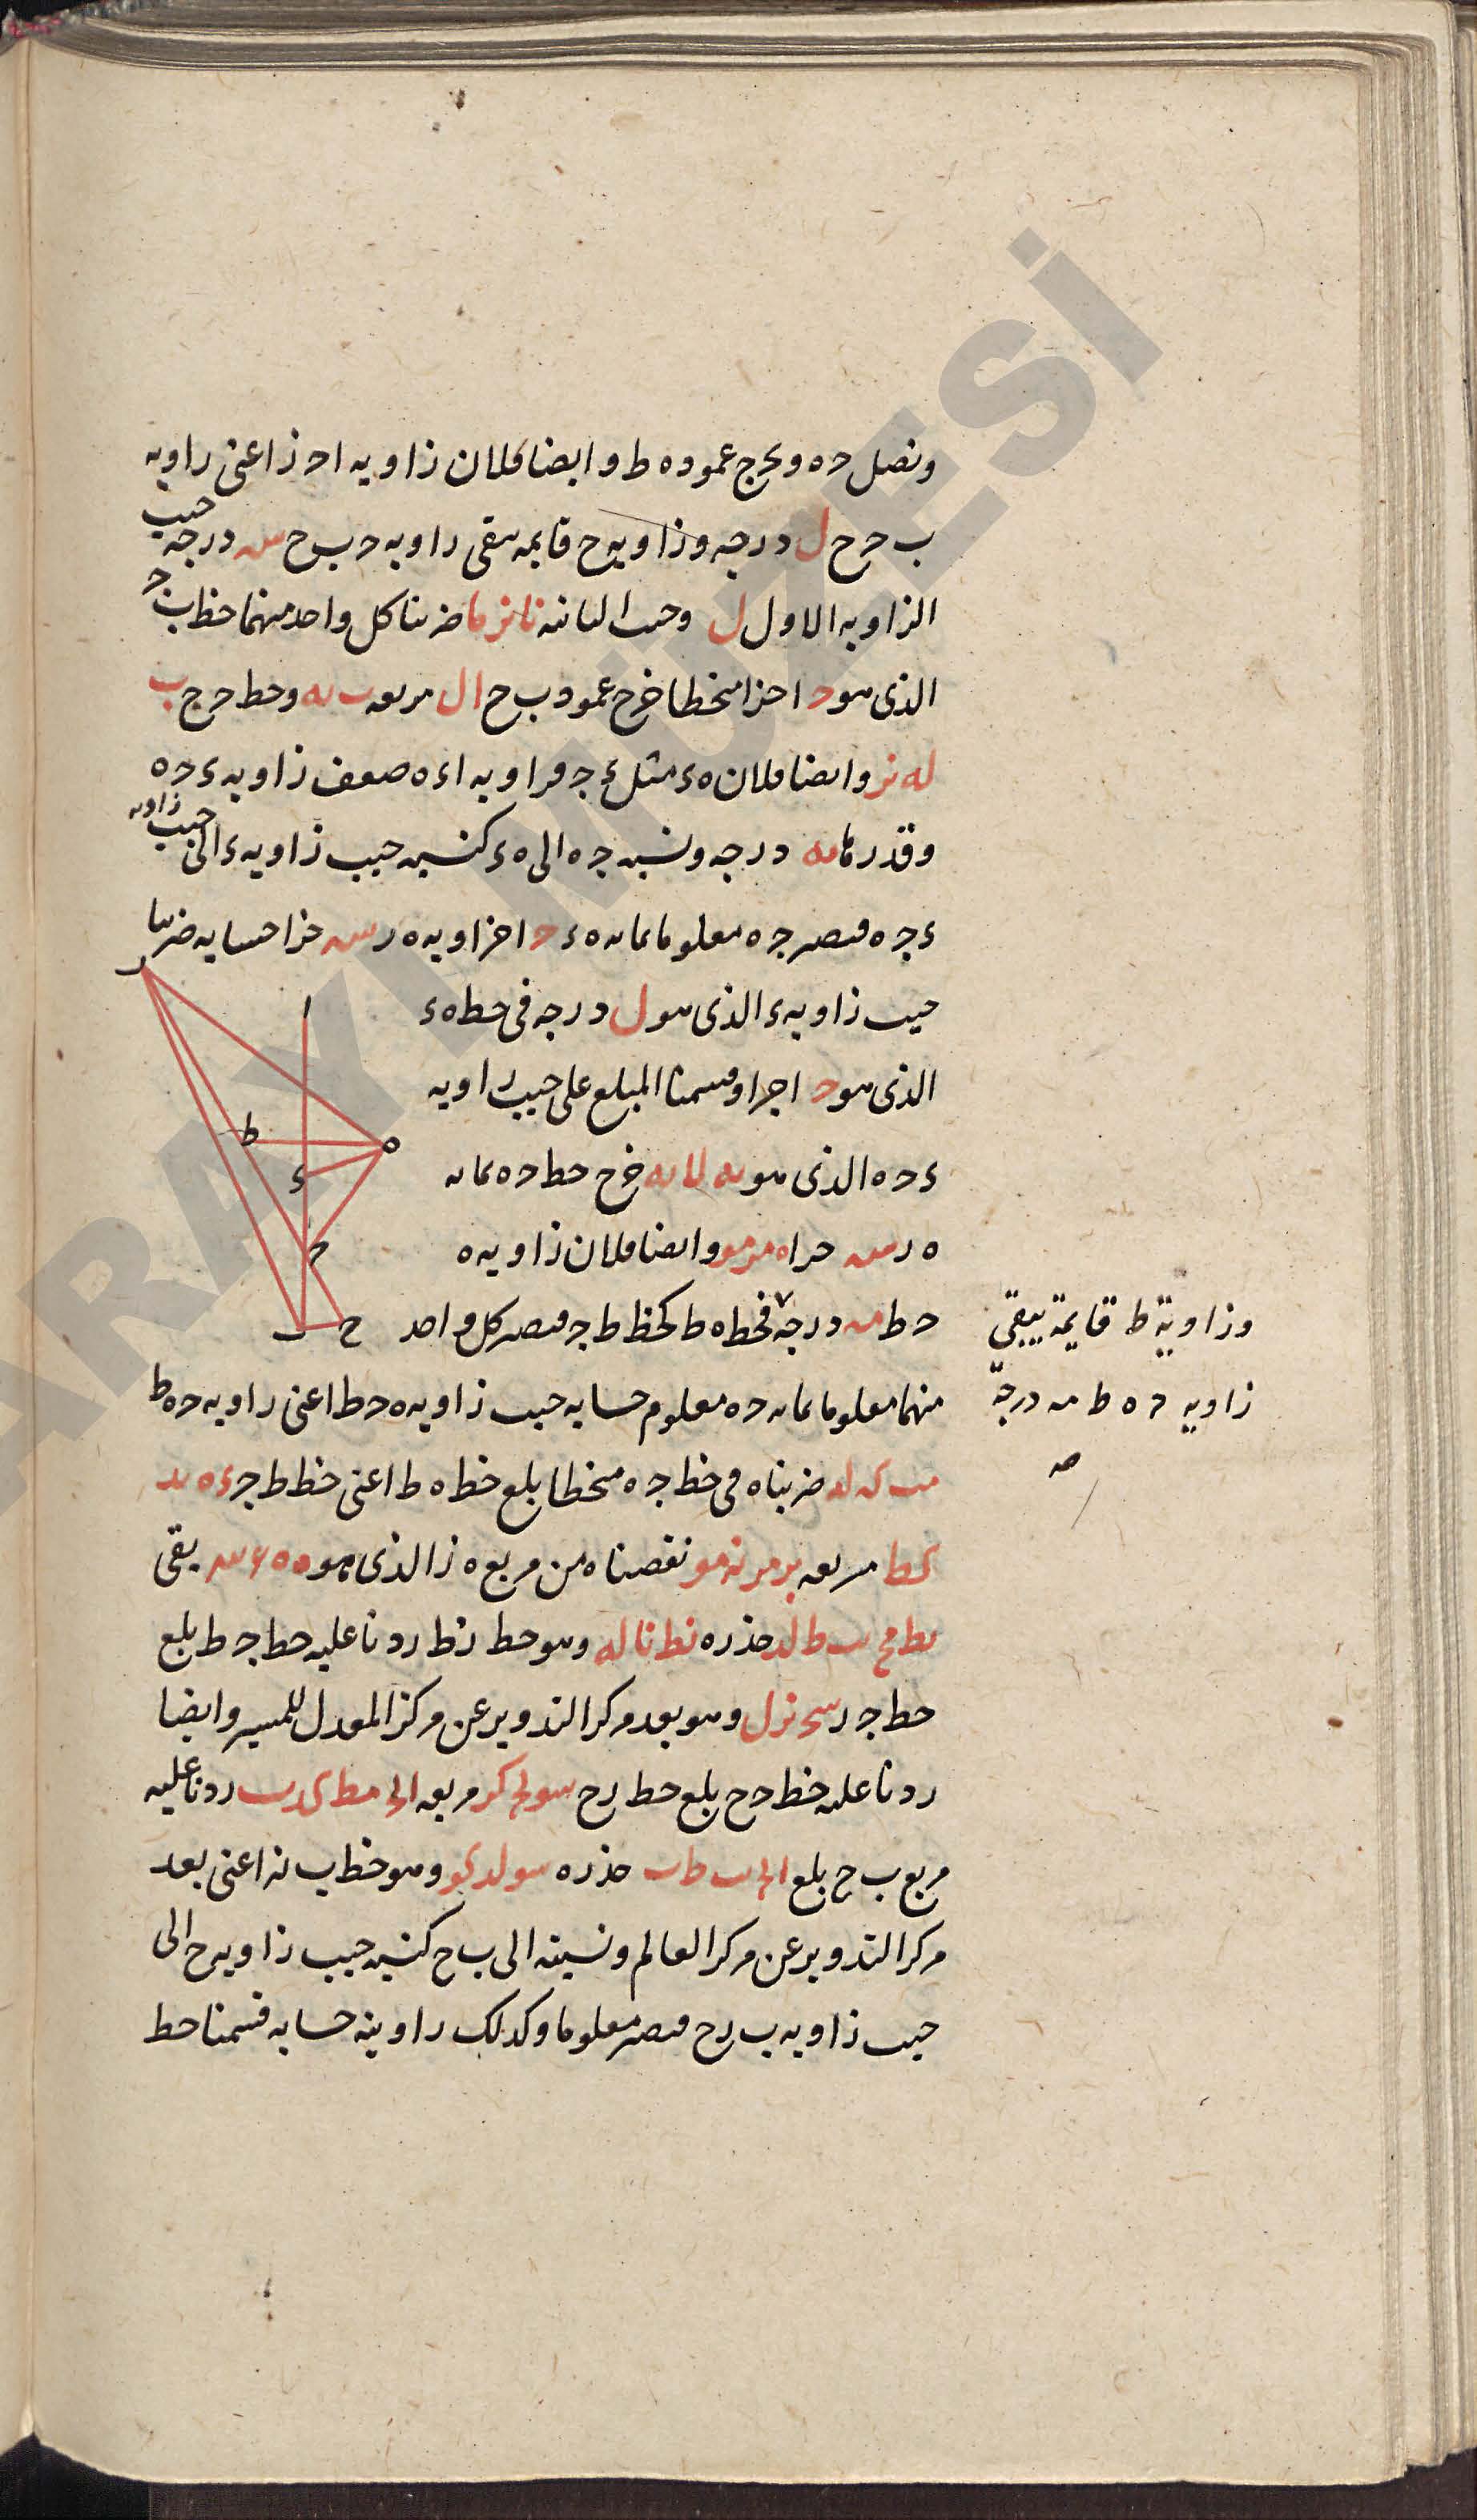 ونصل حه ونخرج عمود ه ط وايضا فلان زاويه احز اعنى زاويه
ب ح ح ل درجه وزاويه ح قايمه يبقى زاويه ح ب ح س درجه جيب
الزاويه الاول ل وجيب الثانيه نا نز ما ضربنا كل واحد منهما خط ب ح
الذى هو ح اجزا منحطا خرج عمود ب ح ال مربعه ب يه وخط ح ج ب
له نز وايضا فلان ه ء مثل ء ج فزاويه ا ء ه ضعف زاويه ء ح ه
وقدرها مه درجه ونسبه ج ه الى ه ء كنسبه جيب زاويه ء الى جيب زاويه
ء ج ه فيصير ج ه معلوما بمابه ه ء ح اجزا وبه ه ر س جزا حسابه ضربنا
جيب زاويه ء الذى هو ل درجه فى خط ه ء
الذى هو ح اجزا وقسمنا المبلغ على جيب زاويه
ء ح ه الذى هو يه لا يه خرج خط ح ه بمابه
ه ر س جزا ه مز مو وايضا فلان زاويه ه
ح ط مه درجه فخط ه ط كخط ط ج فيصير كل واحد
منهما معلوما بمابه ح ه معلوم حسابه جيب زاويه ه ح ط اعنى زاويه ح ه ط
مب كه له ضربناه فى خط ج ه منحطا بلغ خط ه ط اعنى خط ط ج ء ه يد
كط مربعه يو مز نه مو نقصناه من مربع ه ز الذى هو ه ه ء س يبقى
نط مح ب ط لد جذره نط نا له وهو خط ز ط زدنا عليه خط ج ط بلغ
خط ج ر سح نز ل وهو بعد مركز التدوير عن مركز المعدل للمسير وايضا
زدنا عليه خط ح ح بلغ خط ر ح سو لح كز مربعه الح مط ى ب زدنا عليه
مربع ب ح بلغ الح ب ط ب جذره سو لد كو وهو خط ب ز اعنى بعد
مركز التدوير عن مركز العالم ونسبته الى ب ح كنسبه جيب زاويه ح الى
جيب زاويه ب ر ح فيصير معلوما وكذلك زاويته حسابه قسمنا خط
وزاوية ط قايمة يبقى
زاويه ح ه ط مه درجة
صه
ر
ا
ط
ه
ء
ح
ب
ح
SARAYI MÜZESİ